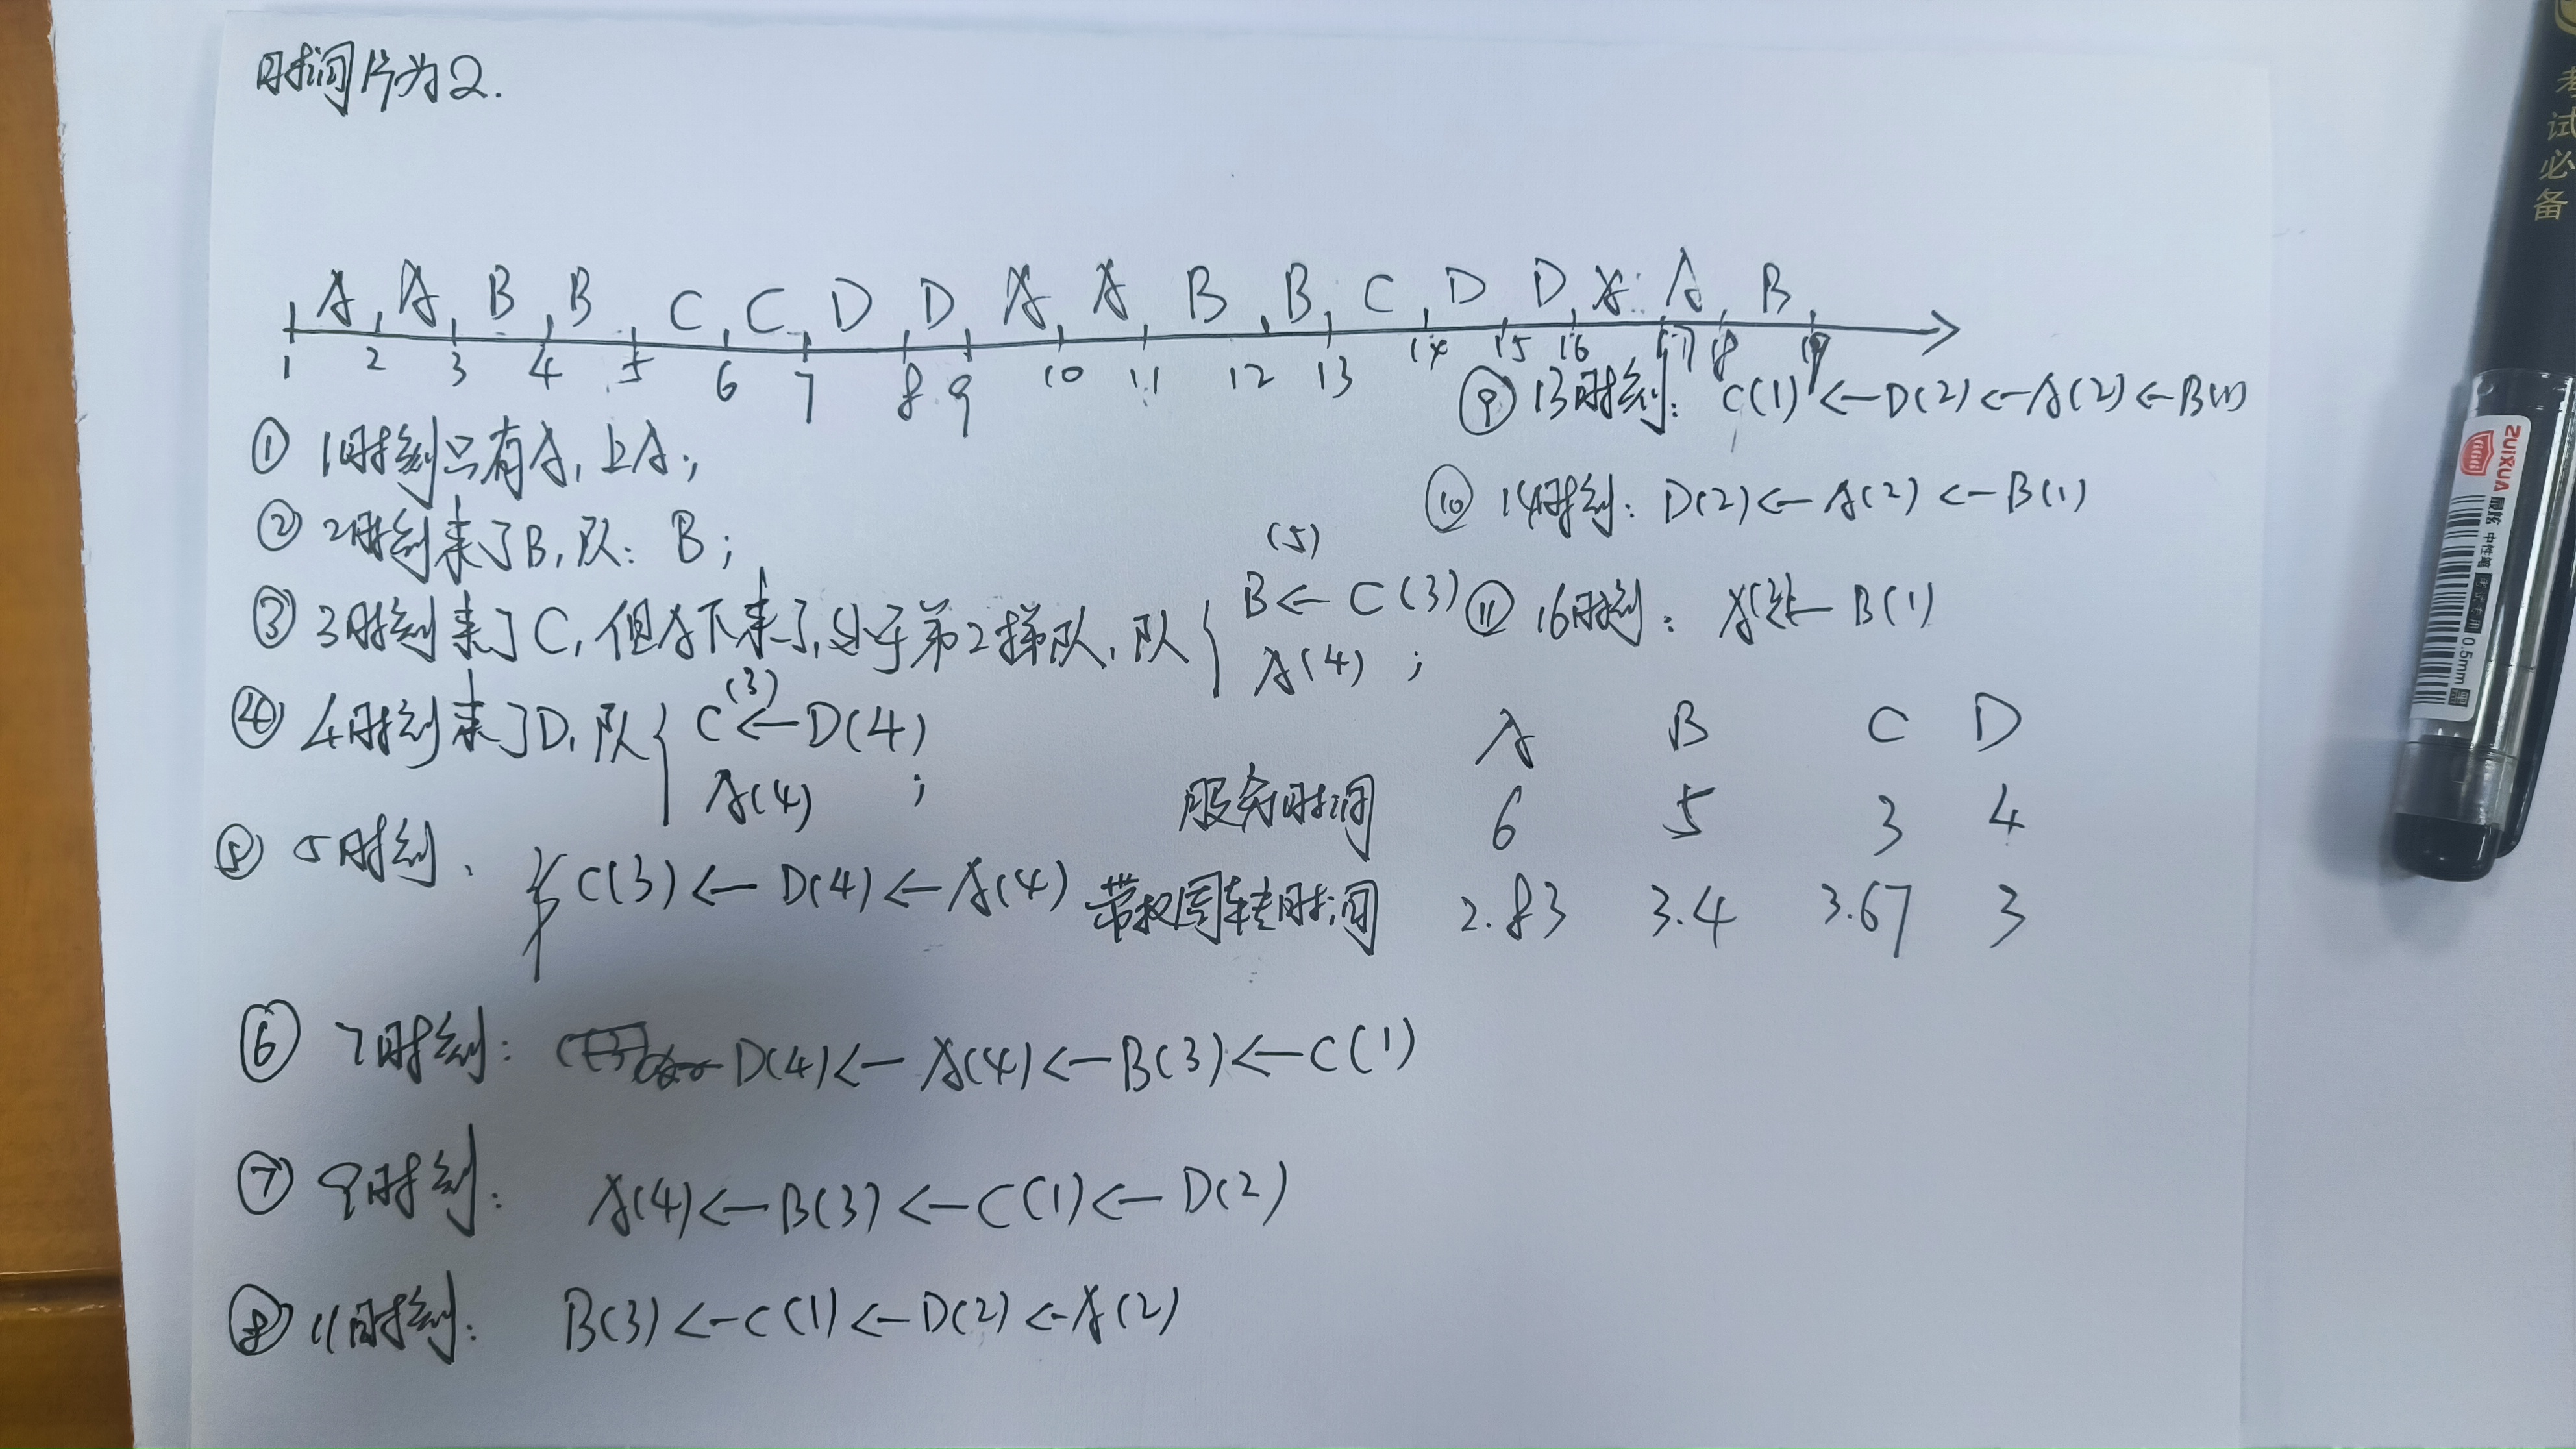 时间片为2.
A A B B C C D D A A B B C D D A A B
1 2 3 4 5 6 7 8 9 10 11 12 13 14 15 16 17 18 19
① 1时刻只有A,上A;
② 2时刻来了B,队: B;
③ 3时刻来了C,但A下来了,处于第2梯队,队{ B(5)←C(3)
A(4) ;
④ 4时刻来了D,队{ C(3)←D(4)
A(4) ;
⑤ 5时刻: C(3)←D(4)←A(4)
⑥ 7时刻: D(4)←A(4)←B(3)←C(1)
⑦ 9时刻: A(4)←B(3)←C(1)←D(2)
⑧ 11时刻: B(3)←C(1)←D(2)←A(2)
⑨ 13时刻: C(1)←D(2)←A(2)←B(1)
⑩ 14时刻: D(2)←A(2)←B(1)
⑪ 16时刻: A(2)←B(1)
A B C D
服务时间 6 5 3 4
带权周转时间 2.83 3.4 3.67 3
考试必备
ZUIXUA
中性笔
0.5mm